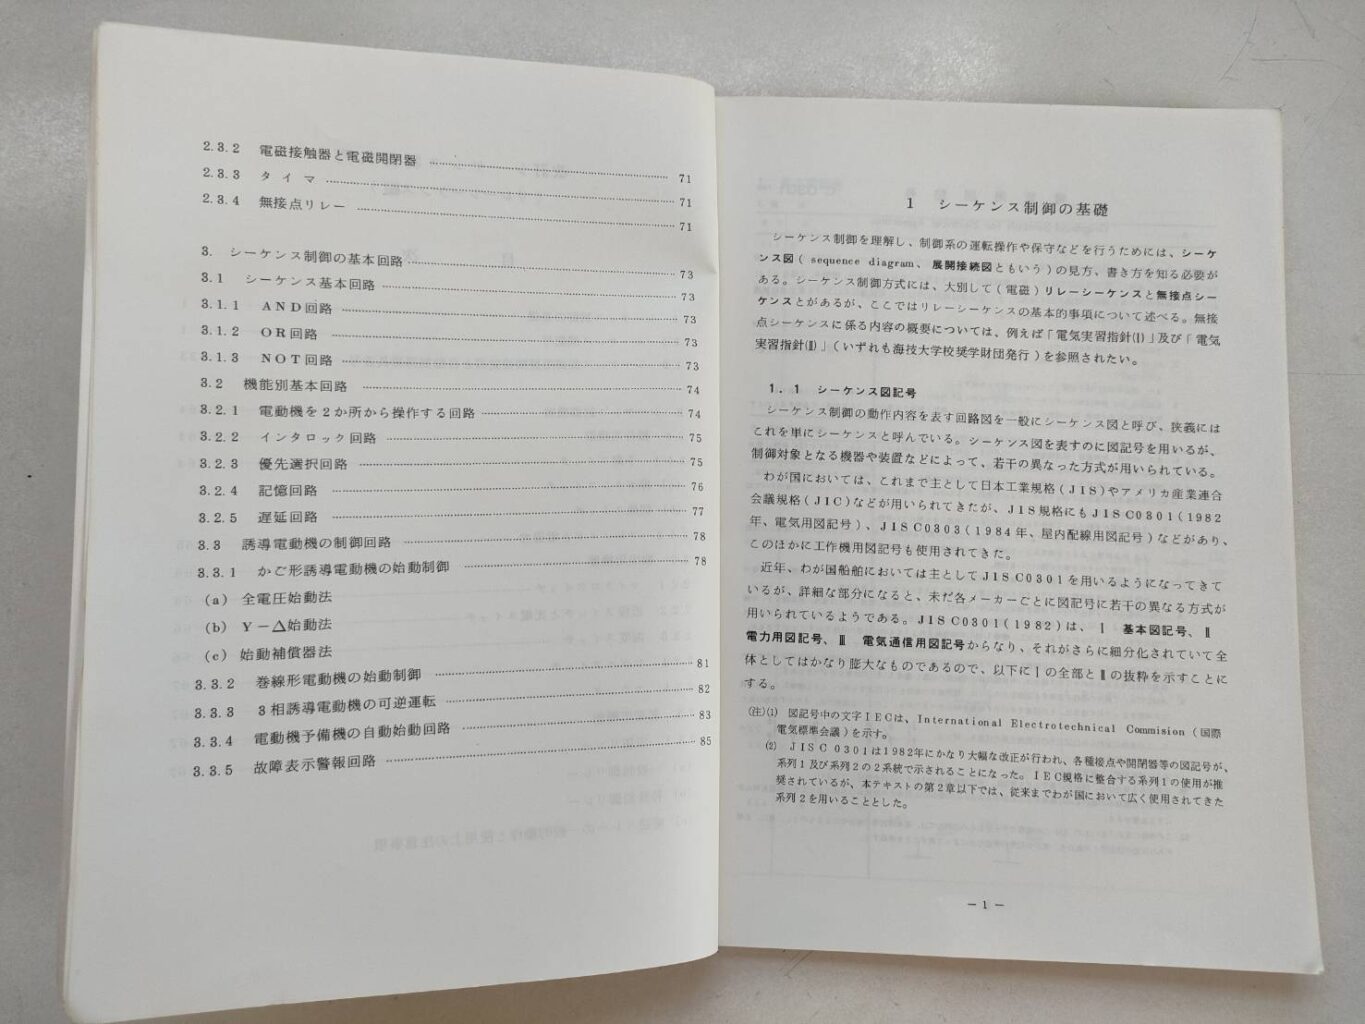 2.3.2 電磁接触器と電磁開閉器 71
2.3.3 タイマ 71
2.3.4 無接点リレー 71
3. シーケンス制御の基本回路 73
3.1 シーケンス基本回路 73
3.1.1 AND回路 73
3.1.2 OR回路 73
3.1.3 NOT回路 73
3.2 機能別基本回路 74
3.2.1 電動機を2か所から操作する回路 74
3.2.2 インタロック回路 75
3.2.3 優先選択回路 75
3.2.4 記憶回路 76
3.2.5 遅延回路 77
3.3 誘導電動機の制御回路 78
3.3.1 かご形誘導電動機の始動制御 78
(a) 全電圧始動法
(b) Y-△始動法
(c) 始動補償器法
3.3.2 巻線形電動機の始動制御 81
3.3.3 3相誘導電動機の可逆運転 82
3.3.4 電動機予備機の自動始動回路 83
3.3.5 故障表示警報回路 85
1 シーケンス制御の基礎
シーケンス制御を理解し、制御系の運転操作や保守などを行うためには、シーケ
ンス図(sequence diagram、展開接続図ともいう)の見方、書き方を知る必要が
ある。シーケンス制御方式には、大別して(電磁)リレーシーケンスと無接点シー
ケンスとがあるが、ここではリレーシーケンスの基本的事項について述べる。無接
点シーケンスに係る内容の概要については、例えば「電気実習指針(Ⅰ)」及び「電気
実習指針(Ⅱ)」(いずれも海技大学校奨学財団発行)を参照されたい。
1.1 シーケンス図記号
シーケンス制御の動作内容を表す回路図を一般にシーケンス図と呼び、狭義には
これを単にシーケンスと呼んでいる。シーケンス図を表すのに図記号を用いるが、
制御対象となる機器や装置などによって、若干の異なった方式が用いられている。
わが国においては、これまで主として日本工業規格(JIS)やアメリカ産業連合
会議規格(JIC)などが用いられてきたが、JIS規格にもJIS C0301(1982
年、電気用図記号)、JIS C0303(1984年、屋内配線用図記号)などがあり、
このほかに工作機用図記号も使用されてきた。
近年、わが国船舶においては主としてJIS C0301を用いるようになってきて
いるが、詳細な部分になると、未だ各メーカーごとに図記号に若干の異なる方式が
用いられているようである。JIS C0301(1982)は、Ⅰ 基本図記号、Ⅱ
電力用図記号、Ⅲ 電気通信用図記号からなり、それがさらに細分化されていて全
体としてはかなり膨大なものであるので、以下にⅠの全部とⅡの抜粋を示すことに
する。
(注)(1) 図記号中の文字IECは、International Electrotechnical Commision(国際
電気標準会議)を示す。
(2) JIS C 0301は1982年にかなり大幅な改正が行われ、各種接点や開閉器等の図記号が、
系列1及び系列2の2系統で示されることになった。IEC規格に整合する系列1の使用が推
奨されているが、本テキストの第2章以下では、従来までわが国において広く使用されてきた
系列2を用いることとした。
-1-